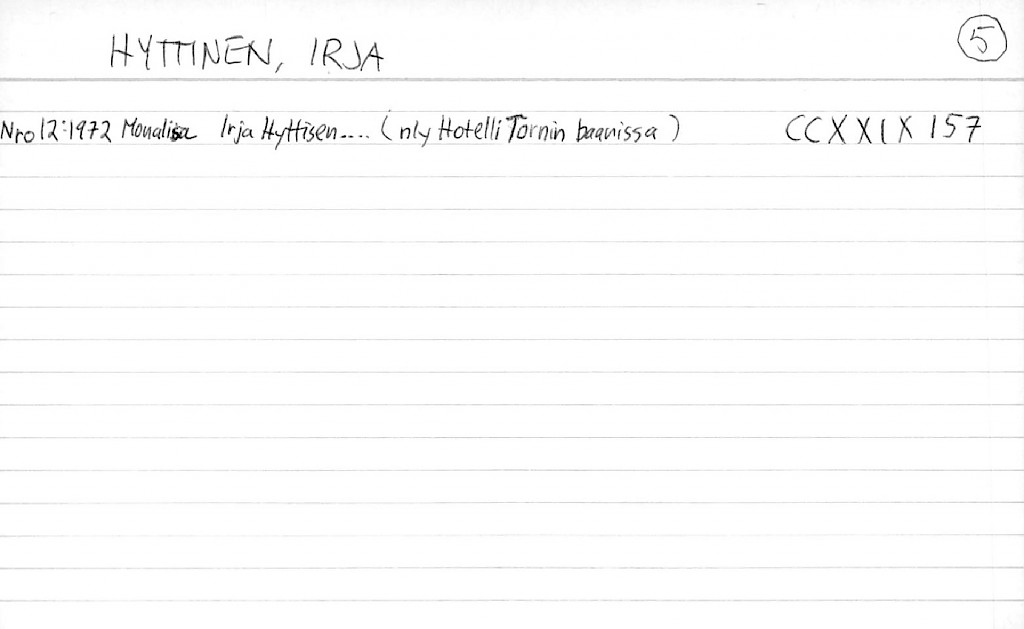 HYTTINEN, IRJA 5
Nro 12:1972 Monalisa Irja Hyttisen.... (nly Hotelli Tornin baanissa) CCXXIX 157